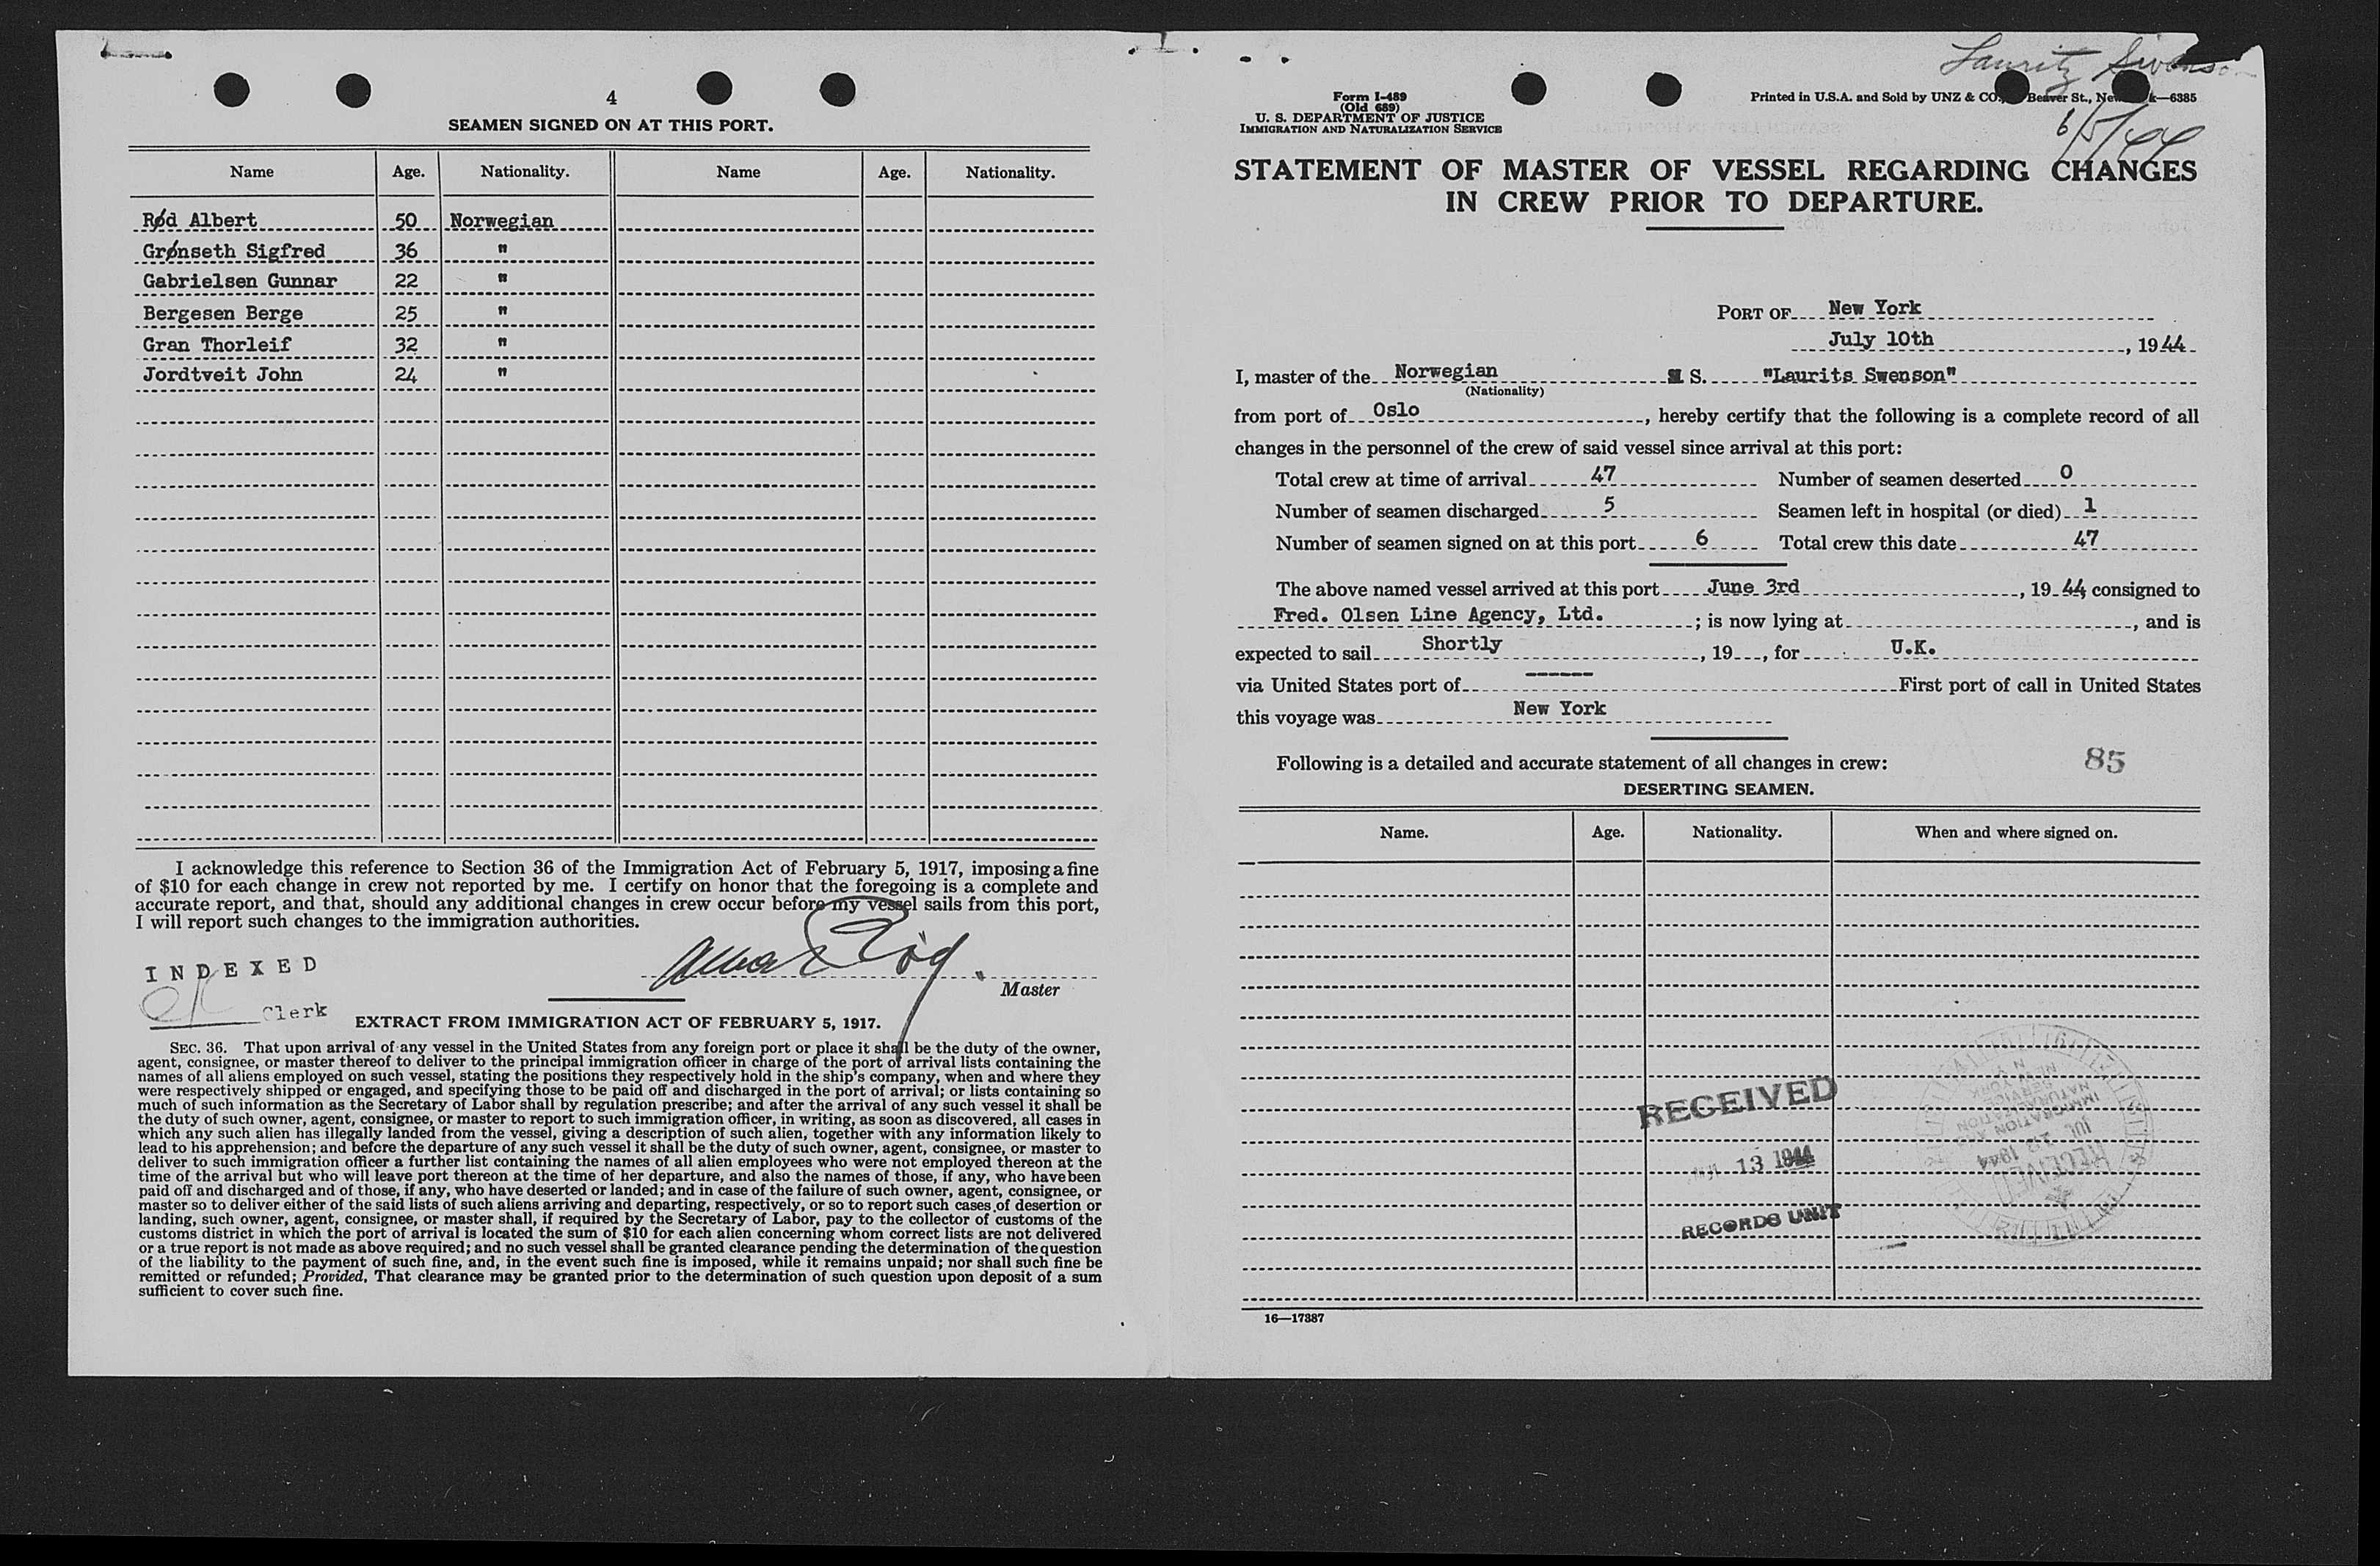 4
SEAMEN SIGNED ON AT THIS PORT.
Name Age. Nationality. Name Age. Nationality.
Rød Albert 50 Norwegian
Grønseth Sigfred 36 "
Gabrielsen Gunnar 22 "
Bergesen Berge 25 "
Gran Thorleif 32 "
Jordtveit John 24 "
I acknowledge this reference to Section 36 of the Immigration Act of February 5, 1917, imposing a fine
of $10 for each change in crew not reported by me. I certify on honor that the foregoing is a complete and
accurate report, and that, should any additional changes in crew occur before my vessel sails from this port,
I will report such changes to the immigration authorities.
INDEXED
Master
Clerk
EXTRACT FROM IMMIGRATION ACT OF FEBRUARY 5, 1917.
SEC. 36. That upon arrival of any vessel in the United States from any foreign port or place it shall be the duty of the owner,
agent, consignee, or master thereof to deliver to the principal immigration officer in charge of the port of arrival lists containing the
names of all aliens employed on such vessel, stating the positions they respectively hold in the ship's company, when and where they
were respectively shipped or engaged, and specifying those to be paid off and discharged in the port of arrival; or lists containing so
much of such information as the Secretary of Labor shall by regulation prescribe; and after the arrival of any such vessel it shall be
the duty of such owner, agent, consignee, or master to report to such immigration officer, in writing, as soon as discovered, all cases in
which any such alien has illegally landed from the vessel, giving a description of such alien, together with any information likely to
lead to his apprehension; and before the departure of any such vessel it shall be the duty of such owner, agent, consignee, or master to
deliver to such immigration officer a further list containing the names of all alien employees who were not employed thereon at the
time of the arrival but who will leave port thereon at the time of her departure, and also the names of those, if any, who have been
paid off and discharged and of those, if any, who have deserted or landed; and in case of the failure of such owner, agent, consignee, or
master so to deliver either of the said lists of such aliens arriving and departing, respectively, or so to report such cases of desertion or
landing, such owner, agent, consignee, or master shall, if required by the Secretary of Labor, pay to the collector of customs of the
customs district in which the port of arrival is located the sum of $10 for each alien concerning whom correct lists are not delivered
or a true report is not made as above required; and no such vessel shall be granted clearance pending the determination of the question
of the liability to the payment of such fine, and, in the event such fine is imposed, while it remains unpaid; nor shall such fine be
remitted or refunded; Provided, That clearance may be granted prior to the determination of such question upon deposit of a sum
sufficient to cover such fine.
Lauritz Swenson
Form I-489
(Old 689)
U. S. DEPARTMENT OF JUSTICE
IMMIGRATION AND NATURALIZATION SERVICE
Printed in U.S.A. and Sold by UNZ & CO. Beaver St., New k—6385
6/5/44
STATEMENT OF MASTER OF VESSEL REGARDING CHANGES
IN CREW PRIOR TO DEPARTURE.
PORT OF New York
July 10th, 1944
I, master of the Norwegian M S. "Laurits Swenson"
(Nationality)
from port of Oslo, hereby certify that the following is a complete record of all
changes in the personnel of the crew of said vessel since arrival at this port:
Total crew at time of arrival 47 Number of seamen deserted 0
Number of seamen discharged 5 Seamen left in hospital (or died) 1
Number of seamen signed on at this port 6 Total crew this date 47
The above named vessel arrived at this port June 3rd, 1944 consigned to
Fred. Olsen Line Agency, Ltd.; is now lying at, and is
expected to sail Shortly, 19, for U.K.
via United States port of ------ First port of call in United States
this voyage was New York
Following is a detailed and accurate statement of all changes in crew: 85
DESERTING SEAMEN.
Name. Age. Nationality. When and where signed on.
RECEIVED
13 1944
RECORDS UNIT
IMMIGRATION AND
NATURALIZATION
SERVICE
NEW YORK
N Y
JUL 1944
RECEIVED
16—17387